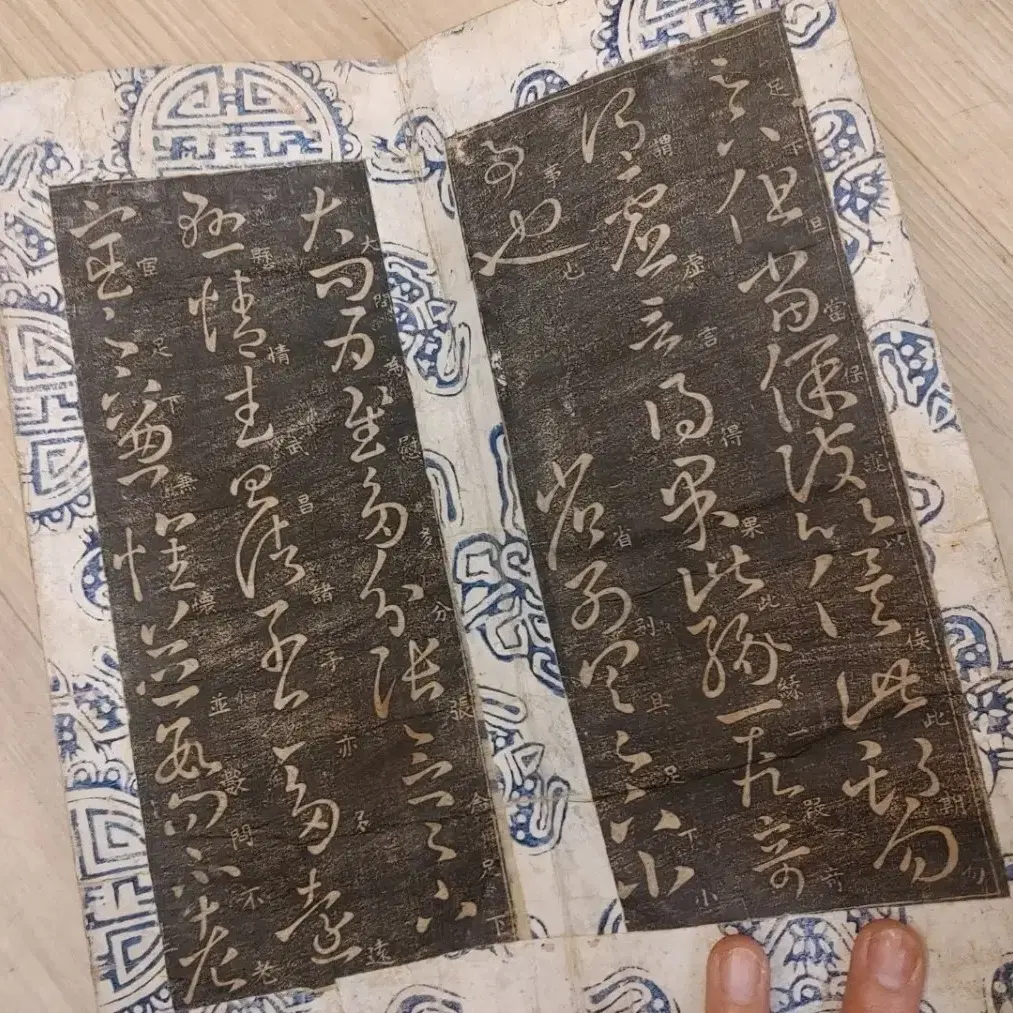 足下但當保護以俟此期勿
謂虛言得果此緣一段奇
事也　省別具足下小
大問為慰多分張念足下
懸情武昌諸子亦多遠
宦足下兼懷並數問不老